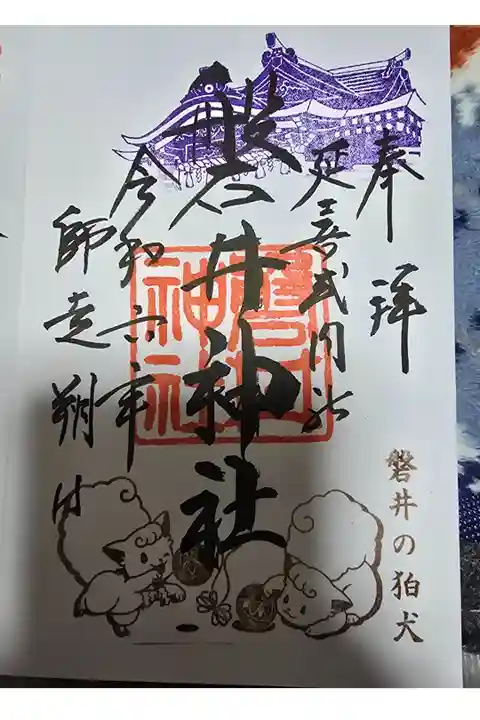 奉拝
延喜式内社
磐井神社
令和六年
師走朔日
磐井
神社
磐井の狛犬